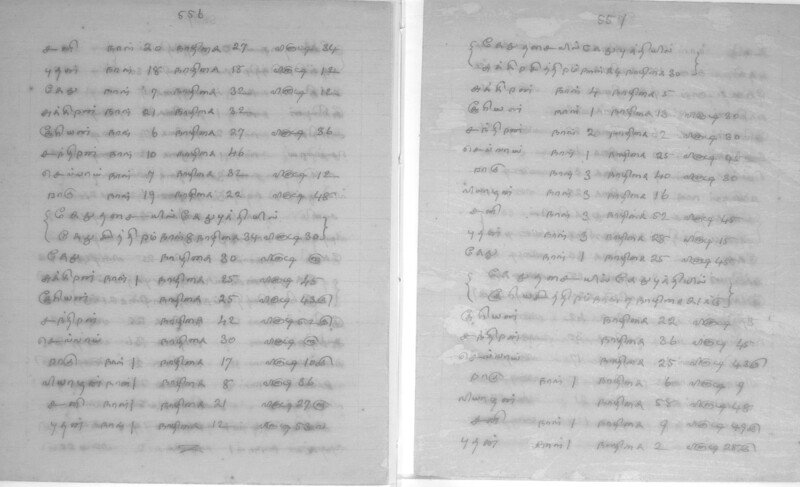 556
சனி நாள் 20 நாழிகை 27 விநாடி 34
புதன் நாள் 18 நாழிகை 15 விநாடி 12
கேது நாள் 9 நாழிகை 32 விநாடி 12
சுக்கிரன் நாள் 21 நாழிகை 32
சூரியன் நாள் 6 நாழிகை 27 விநாடி 36
சந்திரன் நாள் 10 நாழிகை 46
செவ்வாய் நாள் 7 நாழிகை 32 விநாடி 12
ராகு நாள் 19 நாழிகை 22 விநாடி 48
கேது தசையில் கேது புத்தியில்
கேது நாழிகை 34 விநாடி 30
கேது நாழிகை 30 விநாடி
சுக்கிரன் நாள் 1 நாழிகை 25 விநாடி 45
சூரியன் நாழிகை 25 விநாடி
சந்திரன் நாழிகை 42 விநாடி
செவ்வாய் நாழிகை 30 விநாடி
ராகு நாள் 1 நாழிகை 17 விநாடி
வியாழன் நாள் 1 நாழிகை 8 விநாடி 36
சனி நாள் 1 நாழிகை 21 விநாடி
புதன் நாள் 1 நாழிகை 12 விநாடி
557
கேது தசையில் கேது புத்தியில்
நாழிகை 30
சுக்கிரன் நாள் 4 நாழிகை 5
சூரியன் நாள் 1 நாழிகை 13 விநாடி 30
சந்திரன் நாள் 2 நாழிகை 2 விநாடி 30
செவ்வாய் நாள் 1 நாழிகை 25 விநாடி 45
ராகு நாள் 3 நாழிகை 40 விநாடி 30
வியாழன் நாள் 3 நாழிகை 16
சனி நாள் 3 நாழிகை 52 விநாடி 45
புதன் நாள் 3 நாழிகை 28 விநாடி 15
கேது நாள் 1 நாழிகை 25 விநாடி 45
கேது தசையில் கேது புத்தியில்
நாழிகை 21
சூரியன் நாழிகை 22 விநாடி 3
சந்திரன் நாழிகை 36 விநாடி 45
செவ்வாய் நாழிகை 25 விநாடி
ராகு நாள் 1 நாழிகை 6 விநாடி 9
வியாழன் நாழிகை 58 விநாடி 48
சனி நாள் 1 நாழிகை 9 விநாடி
புதன் நாள் 1 நாழிகை 2 விநாடி